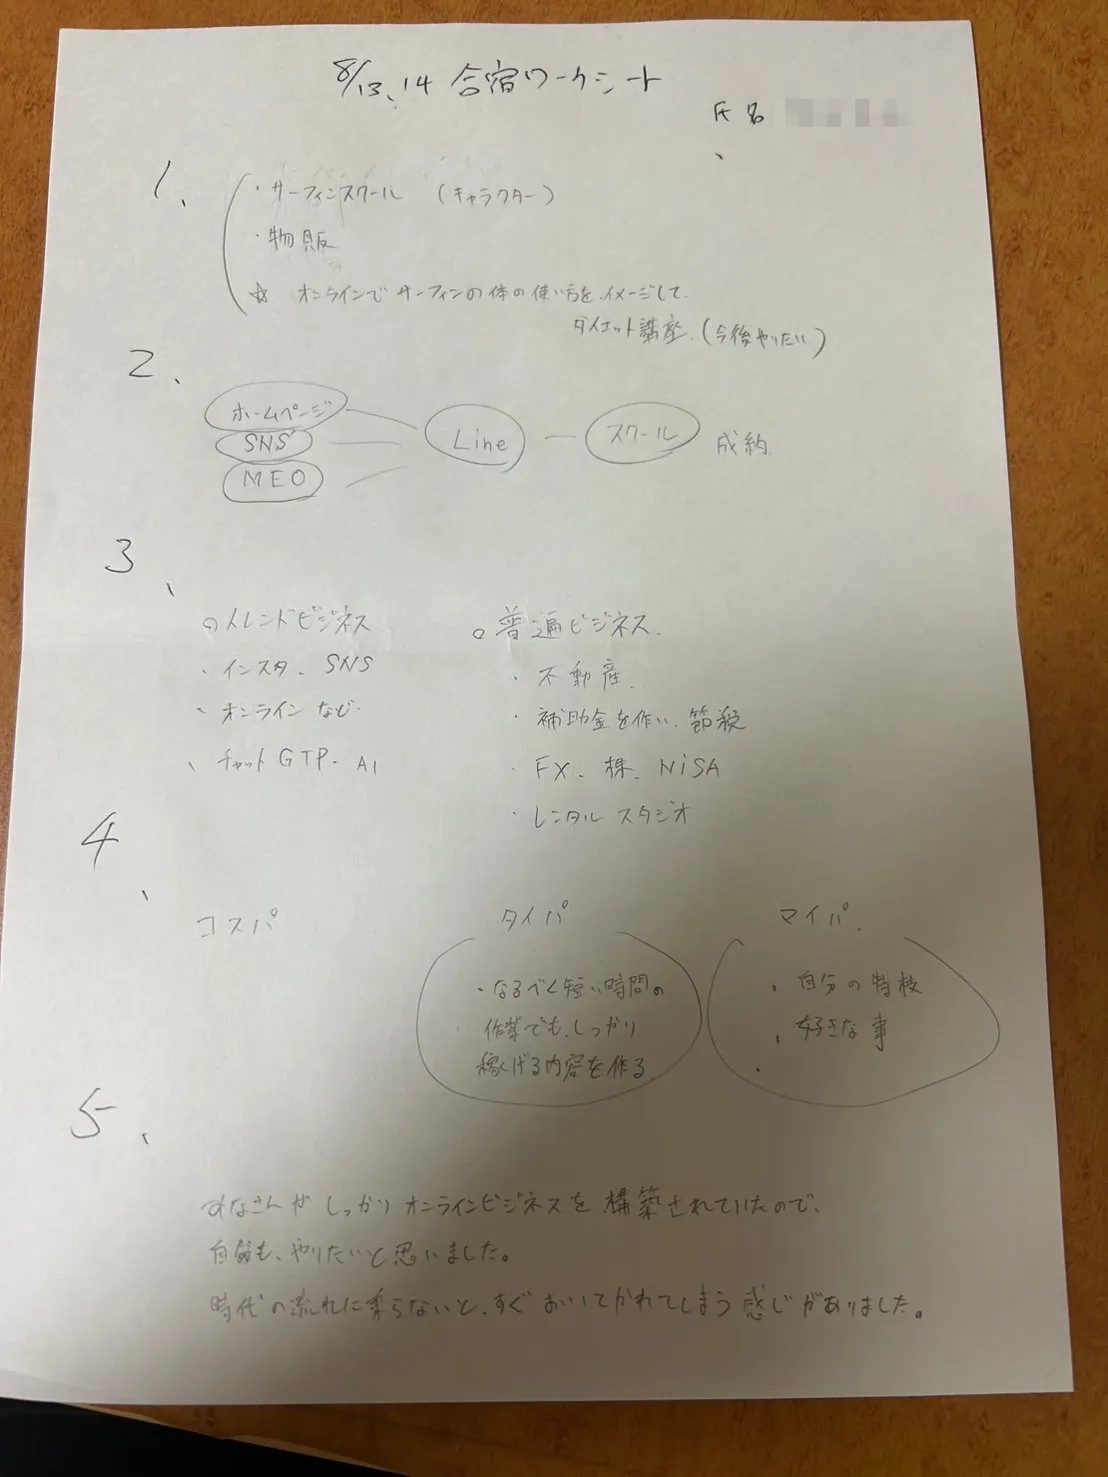 8/13、14 合宿ワークシート
氏名
1、
・サーフィンスクール （キャラクター）
・物販
☆ オンラインでサーフィンの体の使い方をイメージして、
ダイエット講座、（今後やりたい）
2、
ホームページ
SNS
MEO
Line
スクール
成約
3、
○トレンドビジネス
・インスタ、SNS
・オンラインなど
・チャットGTP、AI
○普遍ビジネス
・不動産
・補助金を作い、節税
・FX、株、NiSA
・レンタルスタジオ
4、
コスパ
タイパ
・なるべく短い時間の
作業でも、しっかり
稼げる内容を作る
マイパ
・自分の特技
・好きな事
・
5、
みなさんがしっかりオンラインビジネスを構築されていたので、
自分も、やりたいと思いました。
時代の流れに乗らないと、すぐおいてかれてしまう感じがありました。